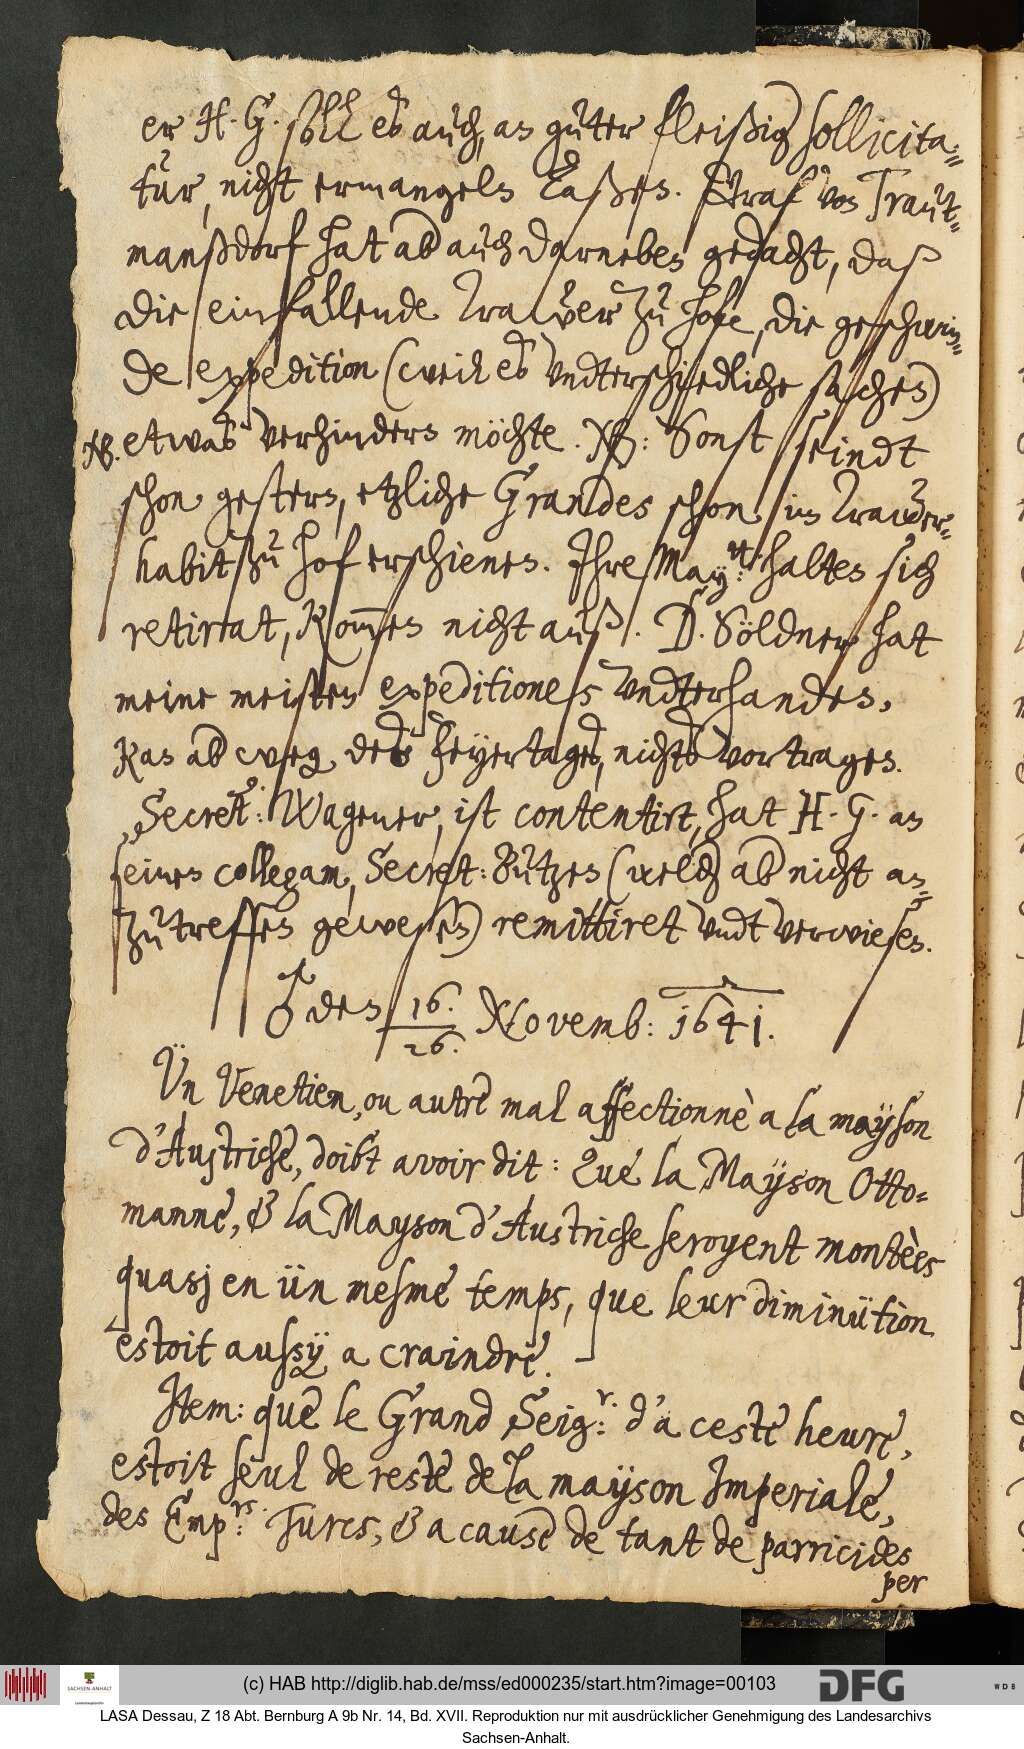 er H. G. soll es auch, an guter fleißig sollicita-
tur, nicht ermangeln laßen. Graf von Traut-
manßdorf hat ab auch darneben gedacht, daß
die einfallende Trawer zu hofe, die geschwin-
de expedition (weil es vndterschiedliche sachen)
NB. etwas verhindern möchte. NB: Sonst seindt
schon gestern, etzliche Grandes schon, in Trawer-
habit zu hof erschienen. Ihre May:tt: halten sich
retirat, kom̅en nicht auß. D. Söldner hat
meine meisten expeditiones vndterhanden,
kan ab weg. des feyertages, nichts vortragen.
Secret: Wagener, ist contentirt, hat H. G. an
seinen collegam, Secret: Bützen (welch ab nicht an-
zutreffen gewesen) remittiret vndt verwiesen.
♂ den 16./26. Novemb: 1641.
Ün Venetien, ou autre mal affectionnè a la mayson
d'Austriche, doibt avoir dit: Que la Mayson Otto-
manne, & la Mayson d'Austriche seroyent montèes
quasj en ün mesme temps, que leur diminütion
estoit aussÿ a craindre.
Item: que le Grand Seig:r. d'a ceste heure,
estoit seul de reste de la mayson Imperiale,
des Emp:rs. Turcs, & a cause de tant de parricides
per
(c) HAB http://diglib.hab.de/mss/ed000235/start.htm?image=00103
SACHSEN-ANHALT
DFG
WDB
LASA Dessau, Z 18 Abt. Bernburg A 9b Nr. 14, Bd. XVII. Reproduktion nur mit ausdrücklicher Genehmigung des Landesarchivs
Sachsen-Anhalt.